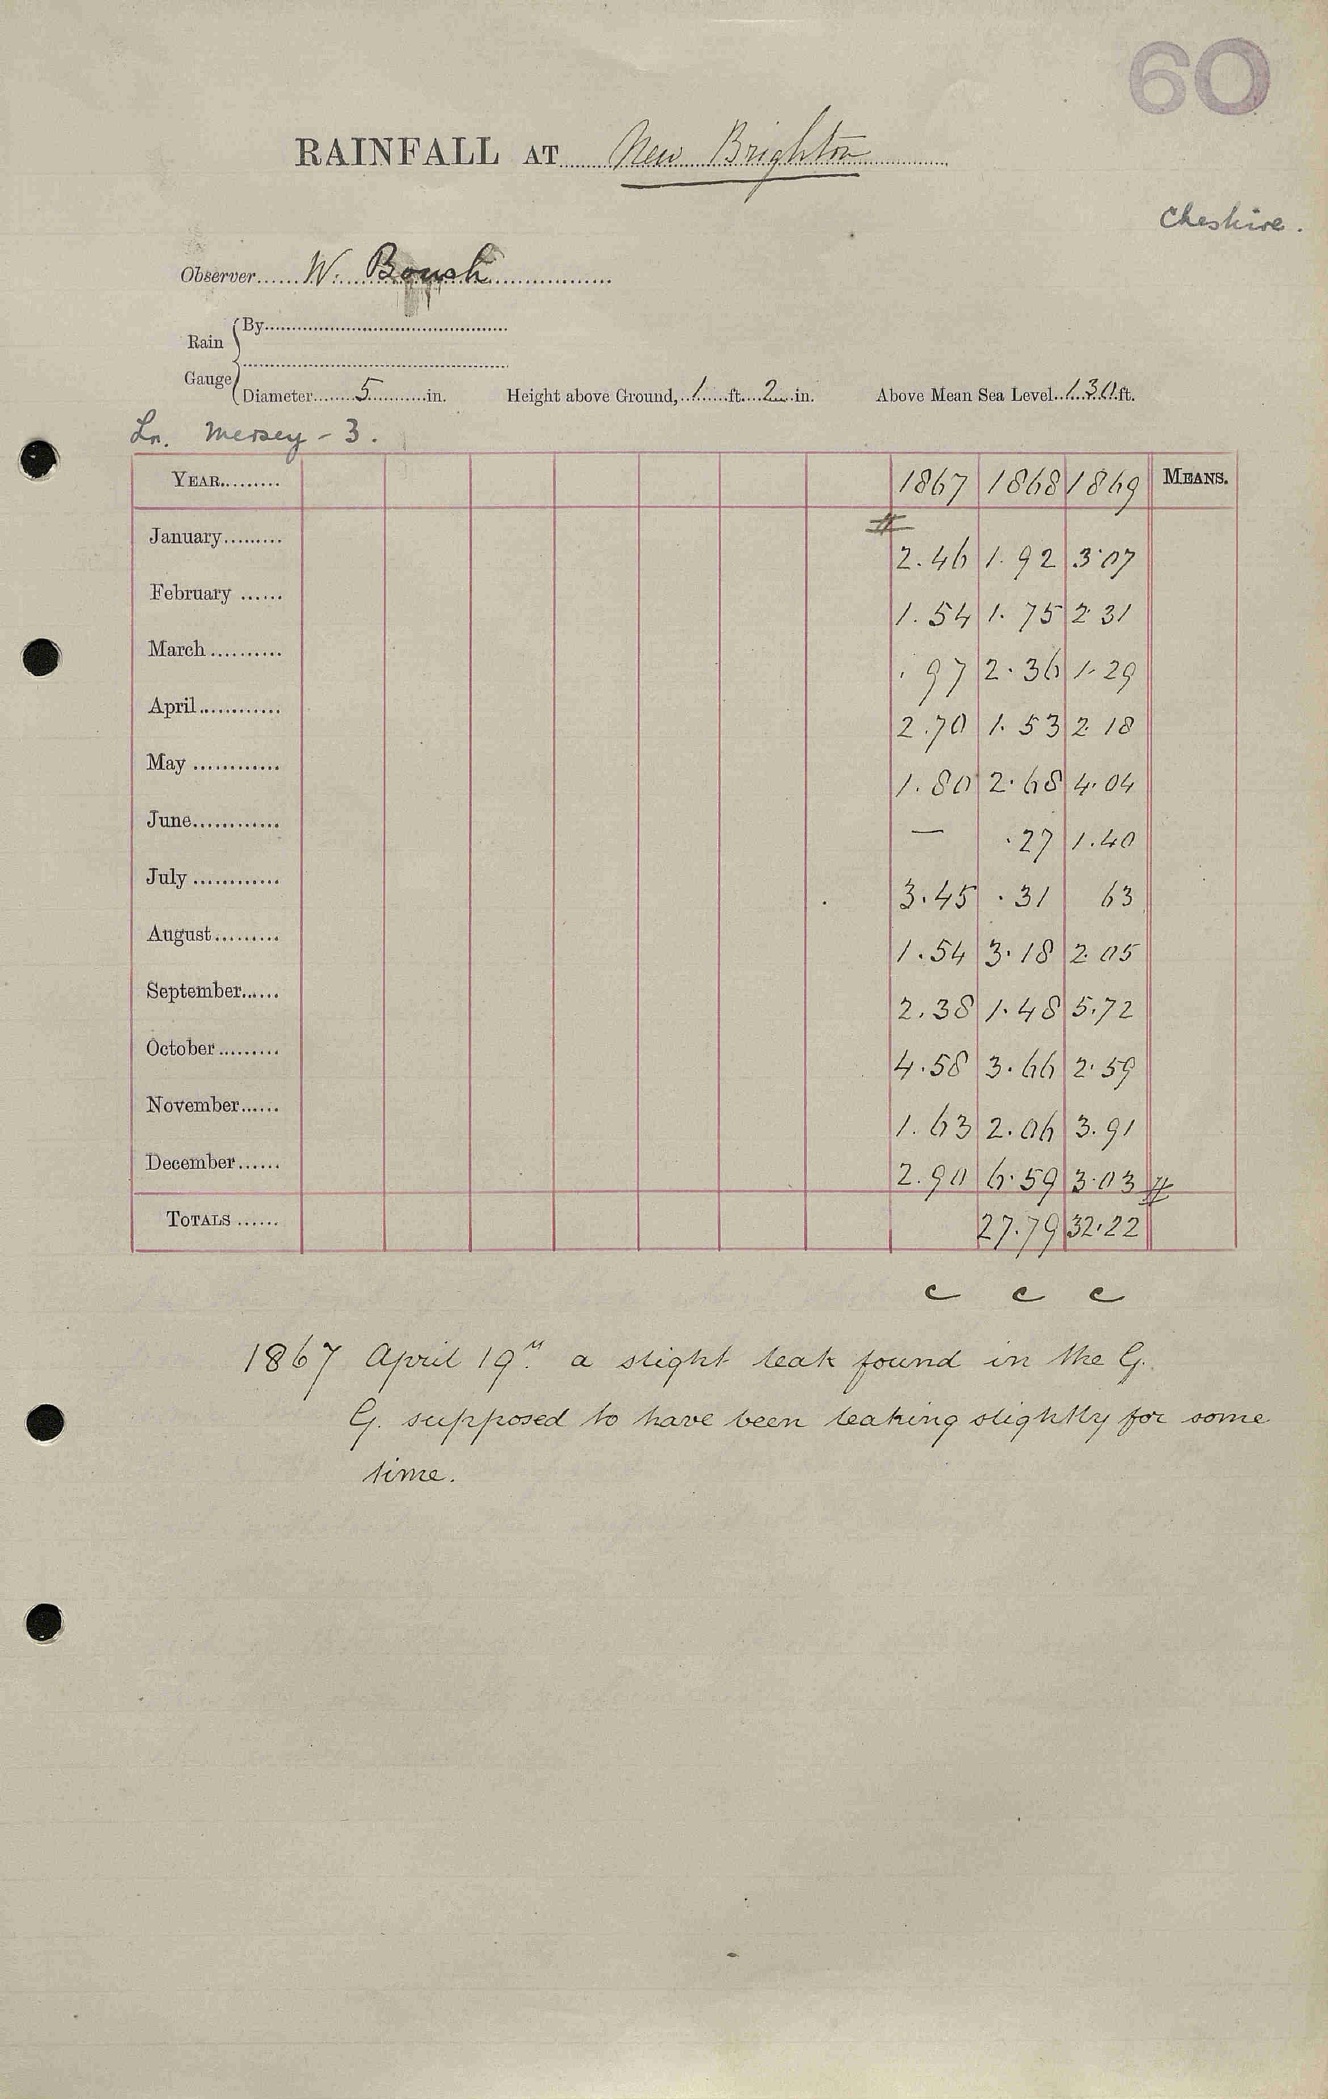 60
RAINFALL AT New Brighton
Cheshire.
Observer W. Boush
Rain Gauge
By
Diameter 5 in. Height above Ground, 1 ft. 2 in. Above Mean Sea Level 130 ft.
Ln. Mersey - 3.
YEAR 1867 1868 1869 MEANS.
#
January 2.46 1.92 3.07
February 1.54 1.75 2.31
March .97 2.36 1.29
April 2.70 1.53 2.18
May 1.80 2.68 4.04
June — .27 1.40
July 3.45 .31 63
August 1.54 3.18 2.05
September 2.38 1.48 5.72
October 4.58 3.66 2.59
November 1.63 2.06 3.91
December 2.90 6.59 3.03 #
TOTALS 27.79 32.22
c c c
1867 April 19th. a slight leak found in the G.
G. supposed to have been leaking slightly for some
time.